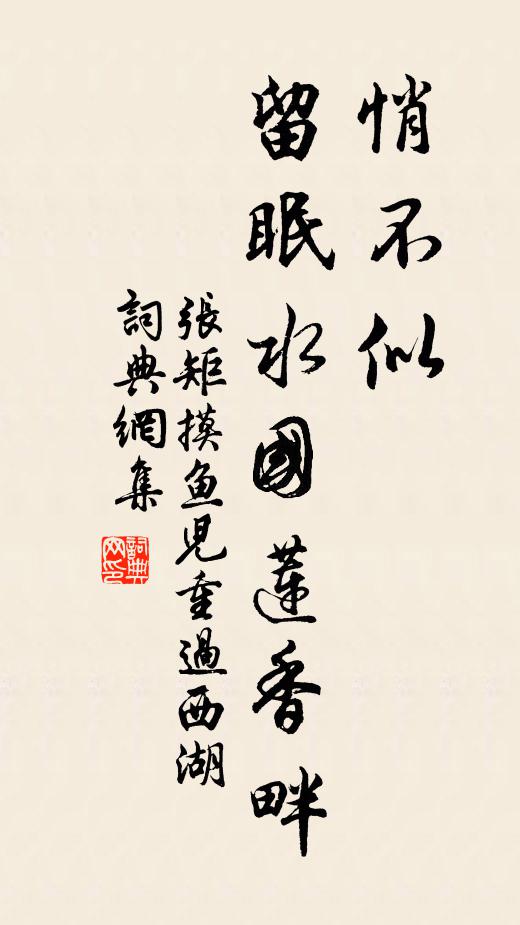 悄不似
留眠水國蓮香畔
張矩摸鱼児重過西湖
詞典網集
詞典网印